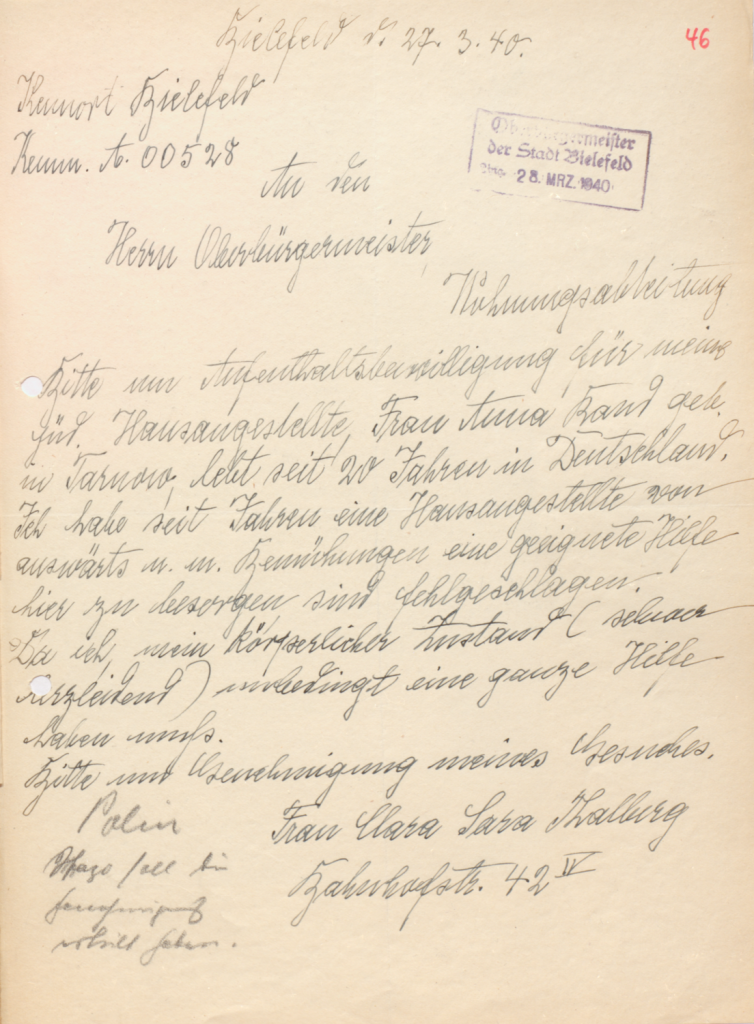 Bielefeld d. 27. 3. 40.
46
Kennort Bielefeld
Kenn. A. 00528
Oberbürgermeister
der Stadt Bielefeld
Eing. 28. MRZ. 1940
An den
Herrn Oberbürgermeister,
Wohnungsabteilung
Bitte um Aufenthaltsbewilligung für meine
jüd. Hausangestellte, Frau Anna Band geb.
in Tarnow, lebt seit 20 Jahren in Deutschland.
Ich habe seit Jahren eine Hausangestellte von
auswärts u. m. Bemühungen eine geeignete Hilfe
hier zu besorgen sind fehlgeschlagen.
Da ich, mein körperlicher Zustand (schwer
herzleidend) unbedingt eine ganze Hilfe
haben muss.
Bitte um Genehmigung meines Gesuches.
Frau Clara Sara Thalberg
Bahnhofstr. 42 IV
Polin
soll die
Genehmigung
erteilt haben.